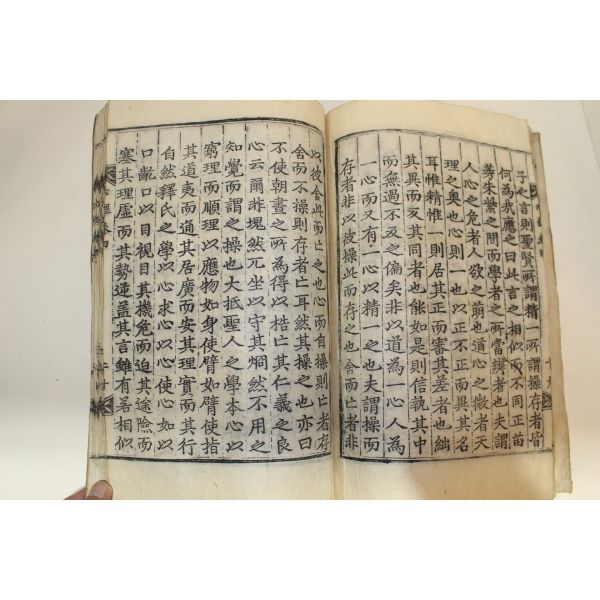 子之言則聖賢所謂精一所謂操存者皆
何為哉應之曰此言之相似而不同正苗
莠朱紫之間而學者之所當辨者也夫謂
人心之危者人欲之萌也道心之微者天
理之奧也心則一也以正不正而異其名
耳惟精惟一則居其正而審其差者也絀
其異而反其同者也能如是則信執其中
而無過不及之偏矣非以道為一心人為
一心而又有一心以精一之也夫謂操而
存者非以彼操此而存之也舍而亡者非
以彼舍此而亡之也心而自操則亡者存
舍而不操則存者亡耳然其操之也亦曰
不使朝晝之所為得以梏亡其仁義之良
心云爾非塊然兀坐以守其烱然不用之
知覺而謂之操也大抵聖人之學本心以
窮理而順理以應物如身使臂如臂使指
其道夷而通其居廣而安其理實而其行
自然釋氏之學以心求心以心使心如以
口齕口以目視目其機危而迫其途險而
塞其理虛而其勢逆蓋其言雖有若相似